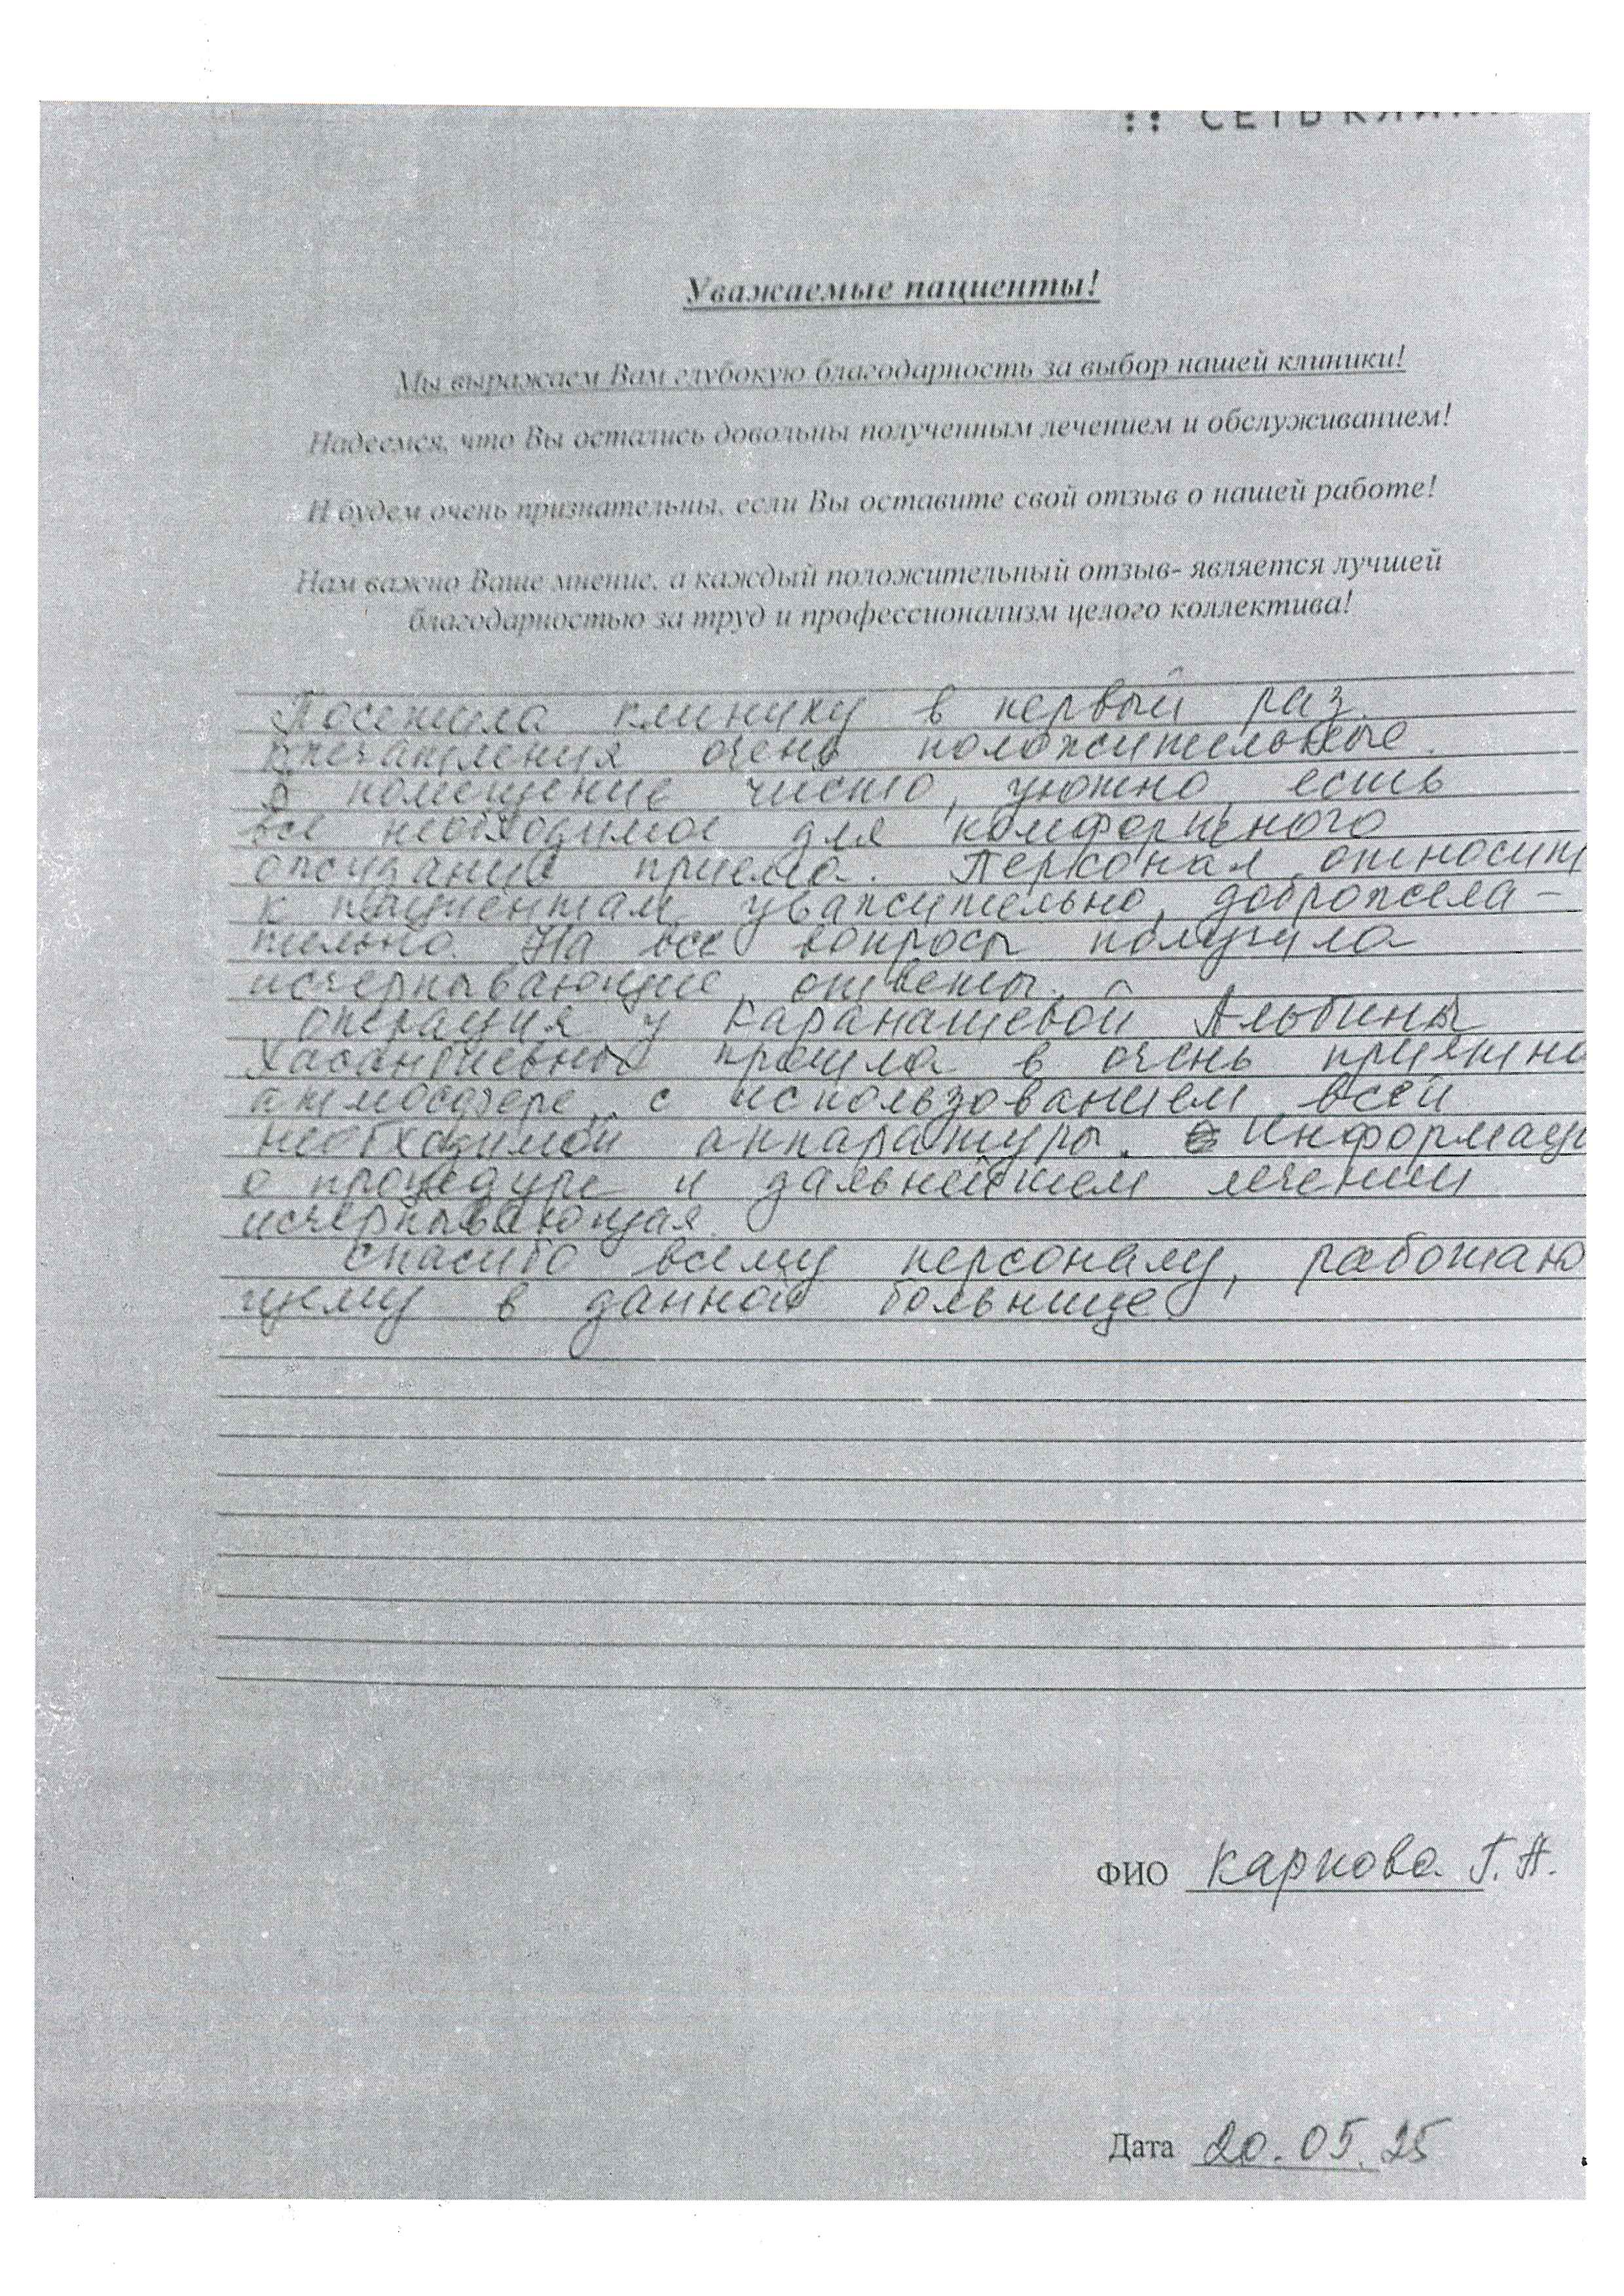 СЕТЬ КЛИН
Уважаемые пациенты!
Мы выражаем Вам глубокую благодарность за выбор нашей клиники!
Надеемся, что Вы остались довольны полученным лечением и обслуживанием!
И будем очень признательны, если Вы оставите свой отзыв о нашей работе!
Нам важно Ваше мнение, а каждый положительный отзыв- является лучшей
благодарностью за труд и профессионализм целого коллектива!
Посетила клинику в первый раз.
Впечатления очень положительные.
В помещение чисто, уютно, есть
все необходимое для комфортного
ожидания приема. Персонал относит
к пациентам уважительно, доброжела-
тельно. На все вопросы получила
исчерпывающие ответы.
Операция у Каранашевой Альбины
прошла в очень приятно
атмосфере, с использованием всей
необходимой аппаратуры. Информаци
о процедуре и дальнейшем лечении
исчерпывающая.
Спасибо всему персоналу, работаю
щему в данной больнице
ФИО Карпова Г.А.
Дата 20.05.25